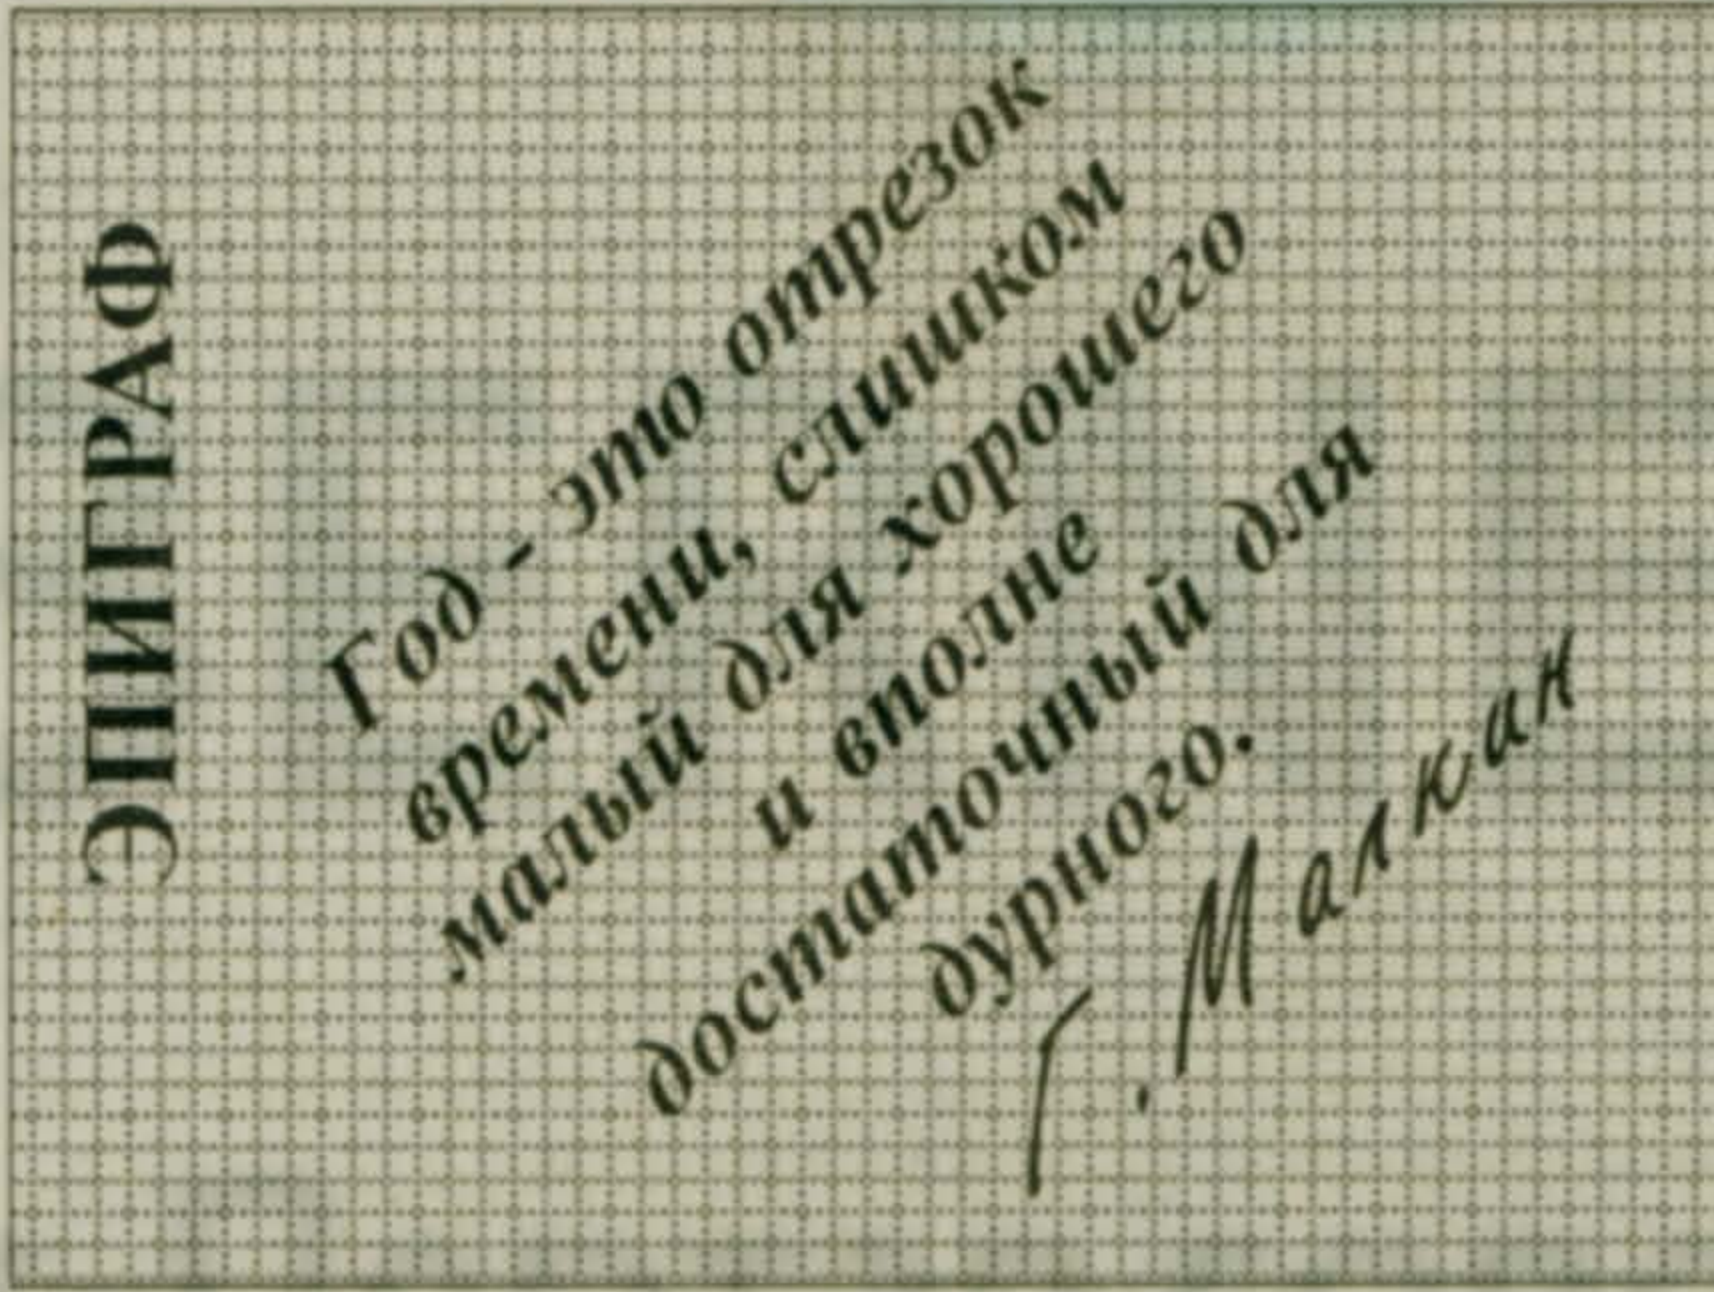 ЭПИГРАФ
Год - это отрезок
времени, слишком
малый для хорошего
и вполне
достаточный для
дурного.
Г. Малкин